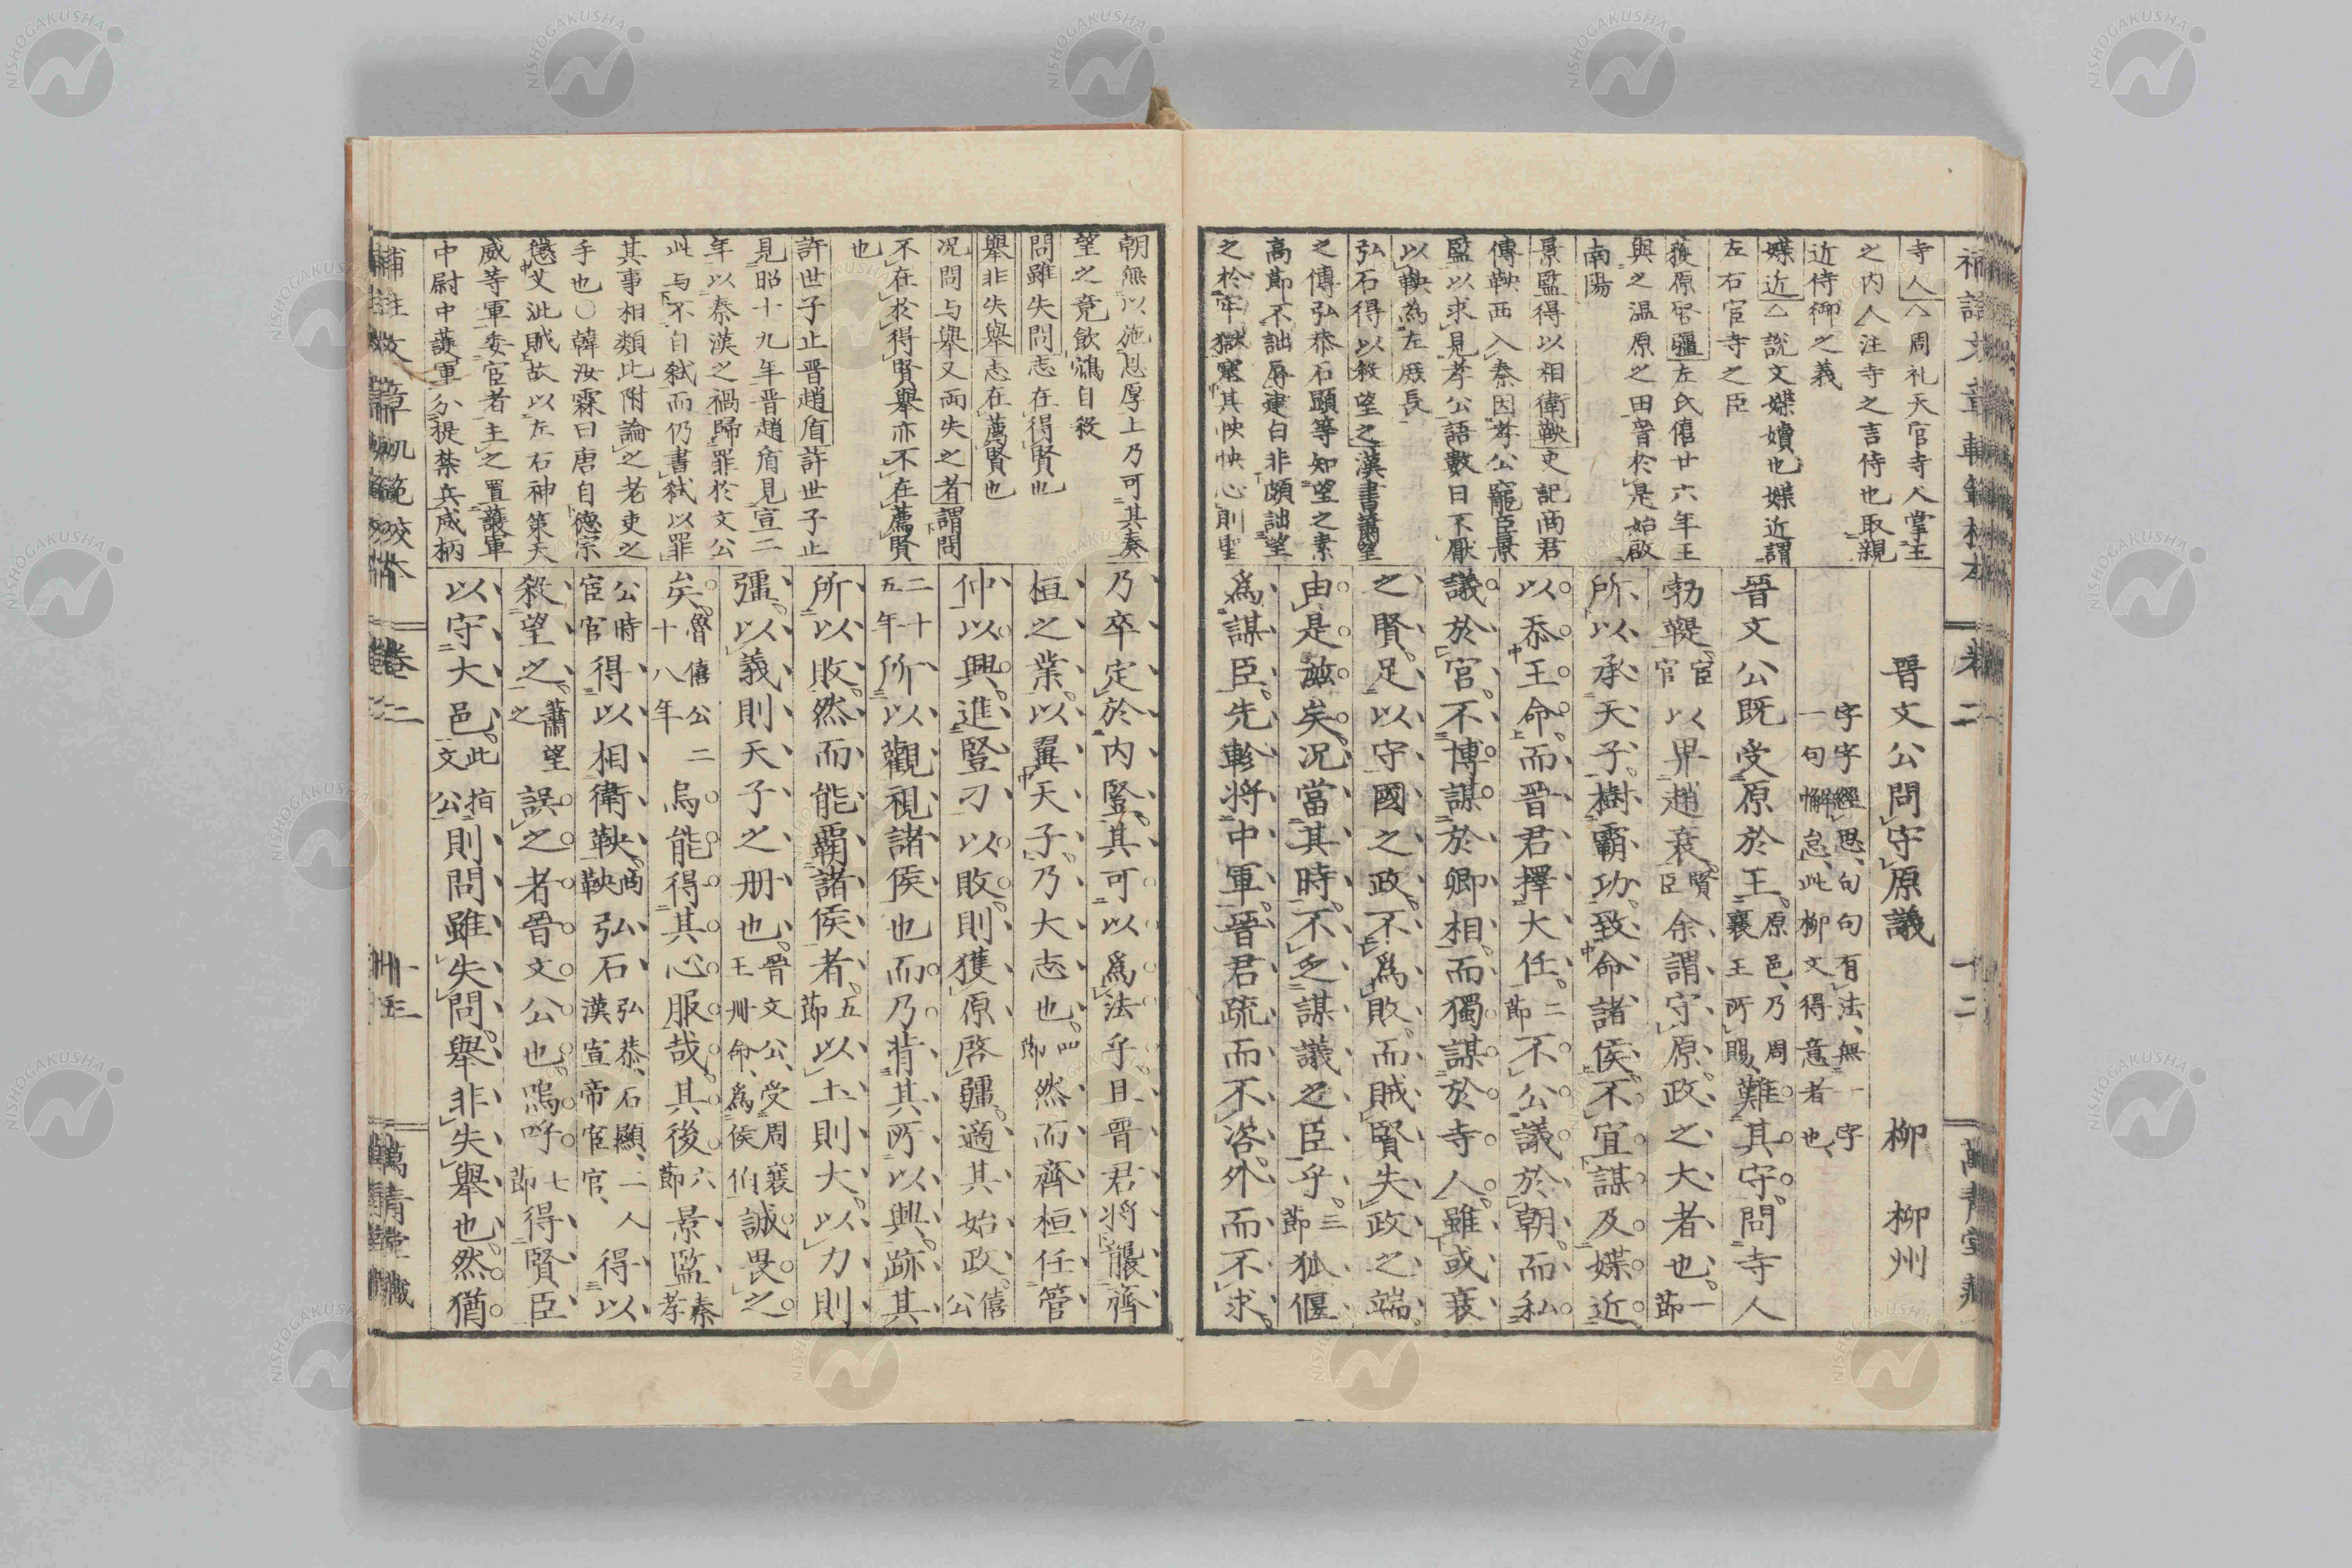 寺人△周礼天官寺人掌王
之内人注寺之言侍也取親
近侍御之義
媟近△説文媟嬻也媟近謂
左右宦寺之臣
獲原啓疆左氏僖廿六年王
與之温原之田晋於是始啟
南陽
景監得以相衛鞅史記商君
傳鞅西入秦因孝公寵臣景
監以求見孝公語數日不厭
以鞅為左庶長
弘石得以殺望之漢書蕭望
之傳弘恭石顕等知望之素
高節不詘辱建白非頗詘望
之於牢獄塞其怏怏心則聖
晋文公問守原議　柳　柳州
字字經思句句有法無一字
一句懈怠此柳文得意者也
晋文公既受原於王。原邑乃周襄王所賜難其守。問寺人
勃鞮宦官以畀趙衰。賢臣余謂守原政之大者也。一節
所以承天子。樹霸功。致命諸侯。不宜謀及媟近。
以忝王命。而晋君擇大任。二節不公議於朝。而私
議於宮。不博謀於卿相。而獨謀於寺人。雖或衰
之賢。足以守國之政。不爲敗。而賊賢失政之端。
由是滋矣。况當其時。不乏謀議之臣乎。三節狐偃
爲謀臣。先軫將中軍。晋君疏而不咨。外而不求。
補註文章軌範校本　卷二　十二　萬青堂藏
朝無以施恩厚上乃可其奏
望之竟飲鴆自殺
問雖失問志在得賢也
舉非失舉志在薦賢也
况問与舉又両失之者謂問
不在於得賢舉亦不在薦賢
也
許世子止晋趙盾許世子止
見昭十九年晋趙盾見宣二
年以秦漢之禍歸罪於文公
此与不自弑而仍書弑以罪
其事相類此附論之老吏之
手也○韓汝霖曰唐自德宗
懲艾泚賊故以左右神策天
威等軍委宦者主之置護軍
中尉中護軍分提禁兵威柄
乃卒定於内豎。其可以爲法乎。且晋君將襲齊
桓之業。以翼天子。乃大志也。四節然而齊桓任管
仲以興。進豎刁以敗。則獲原啓疆。適其始政。僖公
二十五年所以觀視諸侯也。而乃背其所以興。跡其
所以敗。然而能覇諸侯者。五節以土則大。以力則
彊。以義則天子之册也。晋文公受周襄王册命爲侯伯誠畏之
矣。魯僖公二十八年烏能得其心服哉。其後六節景監秦孝
公時宦官得以相衛鞅。商鞅弘石弘恭石顯二人漢宣帝宦官得以
殺望之。蕭望之誤之者晋文公也。嗚呼。七節得賢臣
以守大邑。此指文公則問雖失問。舉非失舉也。然猶
補註文章軌範校本　卷二　萬青堂藏